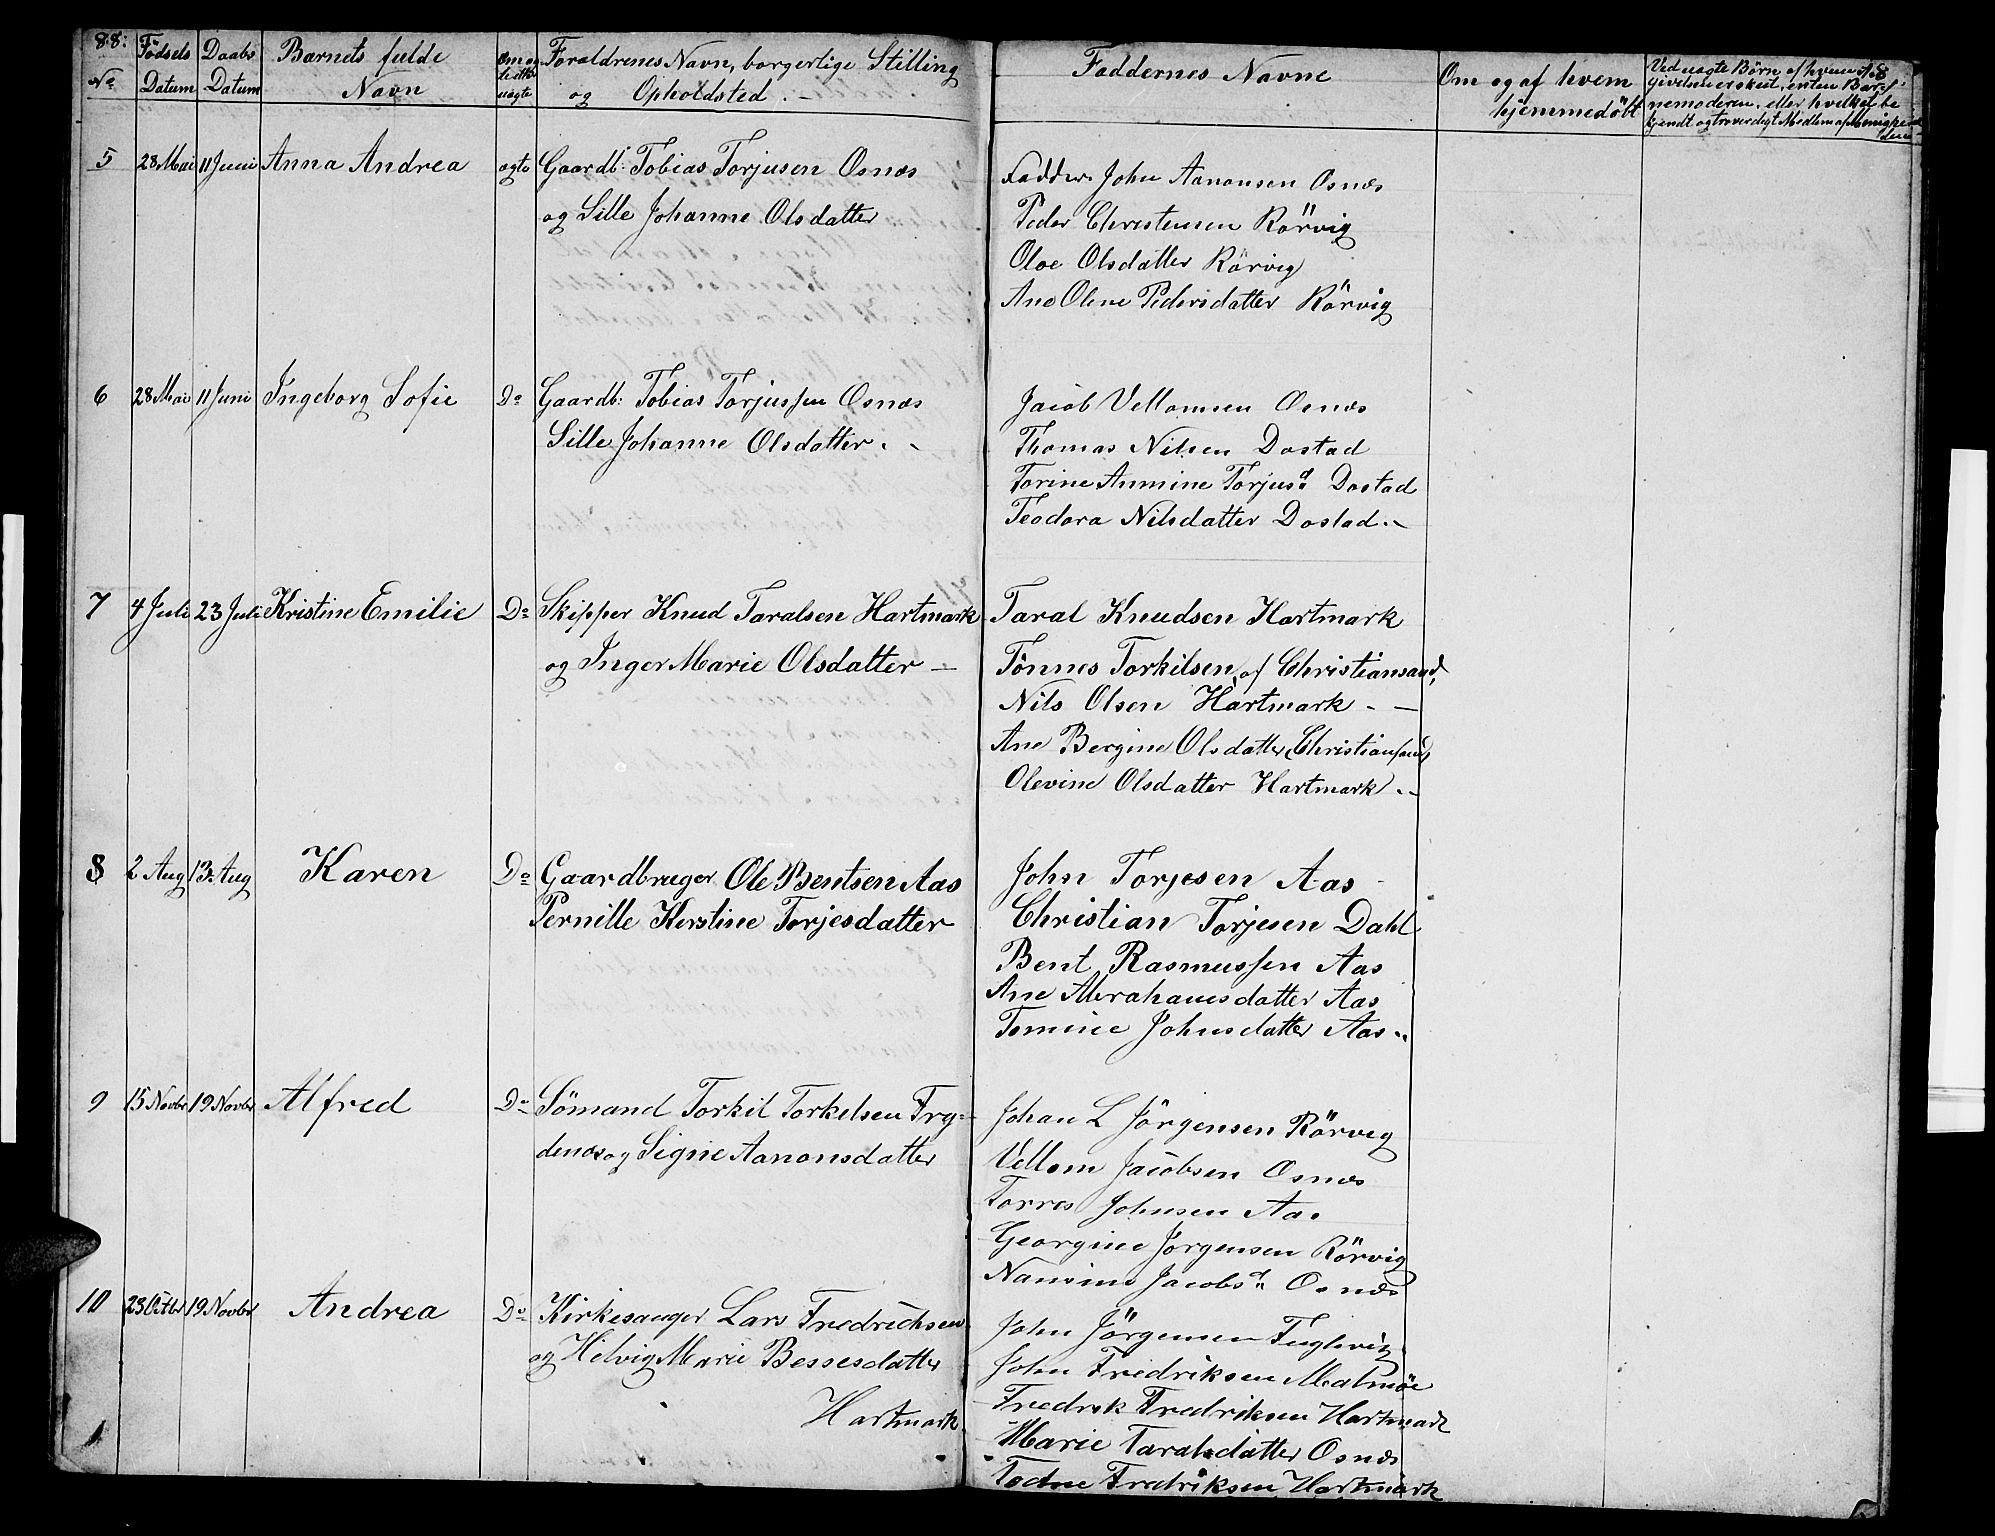 88: Födsels Daabs Barnets fulde Om og Foraldrenes Navn, borgerlige Stilling Faddernes Navne Om og af hvem
No Datum Datum Navn uagte og Opholdsted .— hjemmedöbt
Ved uagte Börn af hvem
nemoderen, eller hvilket be
5 28 Mai 11 Juni Anna Andrea agte Gaardb: Tobias Torjusen Osnæs
og Sille Johanne Olsdatter
Faddere John Aanonsen Osnæs
Peder Christensen Rörvig
Oloe Olsdatter Rörvig
Ane Olene Pedersdatter Rörvig
6 28 Mai 11 Juni Ingeborg Sofie Do Gaardb: Tobias Torjussen Osnæs
Sille Johanne Olsdatter. -
Jacob Vellomsen Osnæs
Thomas Nilsen Dostad
Torine Anmine Torjusd Dostad
Teodora Nilsdatter Dostad.-
7 4 Juli 23 Juli Kristine Emilie Do Skipper Knud Taralsen Hartmark
og Inger Marie Olsdatter —
Taral Knudsen Hartmark
Tönnes Torkilsen af Christiansand,
Nils Olsen Hartmark - —
Ane Bergine Olsdatter Christiansand
Olevine Olsdatter Hartmark .-
8 2 Aug 13 Aug Karen Do Gaardbruger Ole Bentsen Aas
Pernille Kerstine Torjesdatter
John Torjesen Aas
Christian Torjesen Dahl
Bent Rasmussen Aas
Ane Abrahamsdatter Aas
Tomine Johnsdatter Aas..
9 15 Novbr 19 Novbr Alfred Do Sömand Torkil Torkelsen Fry-
denæs og Signe Aanonsdatter
Johan L Jörgensen Rörvig
Vellom Jacobsen Osnæs
Torres Johnsen Aas
Georgine Jörgensen Rörvig
Nansine Jacobsd Osnæs
10 23 Octbr 19 Novbr Andrea Do Kirkesanger Lars Fredrichsen
og Helvig Marie Bessesdatter
Hartmark
John Jörgensen Fuglevig
John Fredriksen Malmöe
Fredrik Fredriksen Hartmark
Marie Taralsdatter Osnæs
Fredriksen Hartmark